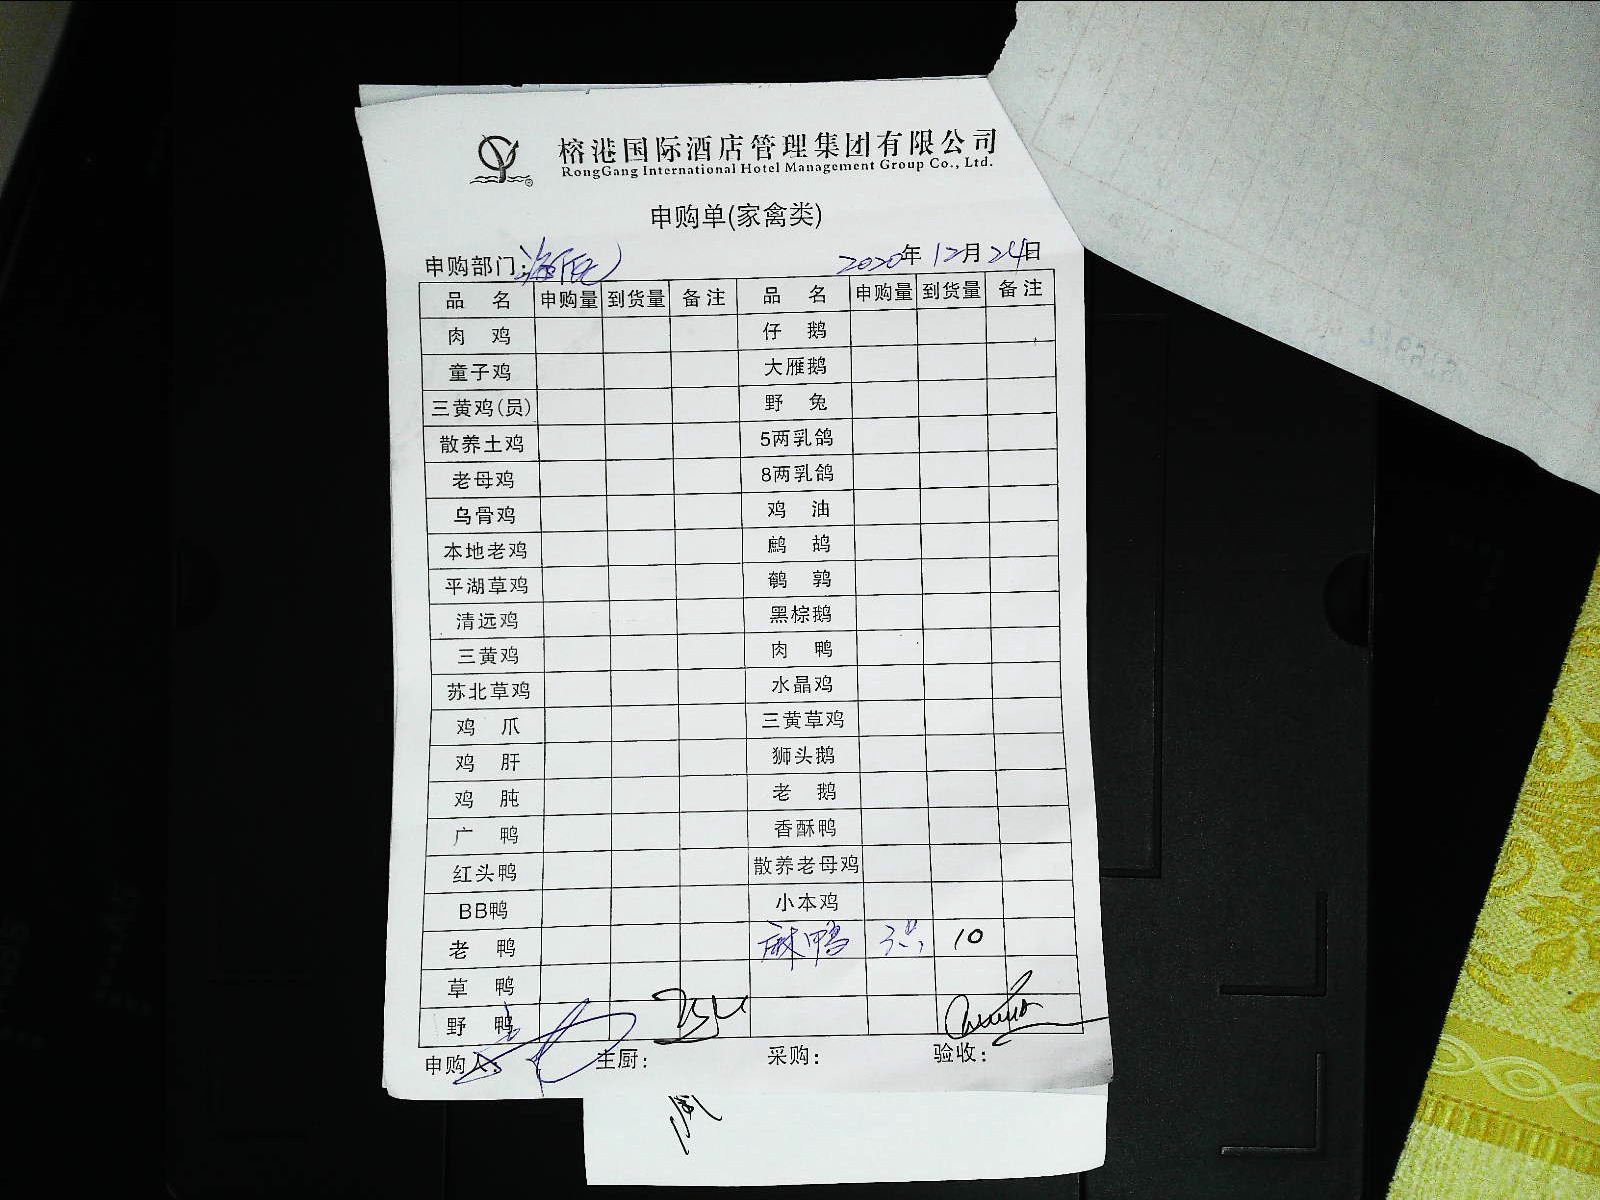 榕港国际酒店管理集团有限公司
RongGang International Hotel Management Group Co., Ltd.
申购单(家禽类)
申购部门: 2020年12月24日
品 名 申购量 到货量 备注 品 名 申购量 到货量 备注
肉 鸡 仔 鹅
童子鸡 大雁鹅
三黄鸡(员) 野 兔
散养土鸡 5两乳鸽
老母鸡 8两乳鸽
乌骨鸡 鸡 油
本地老鸡 鹧 鸪
平湖草鸡 鹌 鹑
清远鸡 黑棕鹅
三黄鸡 肉 鸭
苏北草鸡 水晶鸡
鸡 爪 三黄草鸡
鸡 肝 狮头鹅
鸡 肫 老 鹅
广 鸭 香酥鸭
红头鸭 散养老母鸡
BB鸭 小本鸡
老 鸭 麻鸭 10
草 鸭
野 鸭
申购人: 主厨: 采购: 验收: